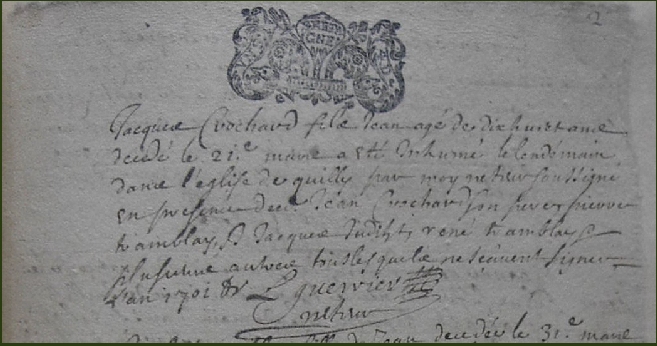 2
Jacques Crochard fils Jean agé de dix huict ans
decedé le 21.e mars a esté Inhumé le lendemain
dans l'eglise de quilly par moy soussigné
en presence de Jean Crochard son pere pierre
tramblay, Jacques rené tramblay
plusieurs autres tous lesquels ne scavent signer
L'an 1701 L guerrier
decedée le 31.e mars